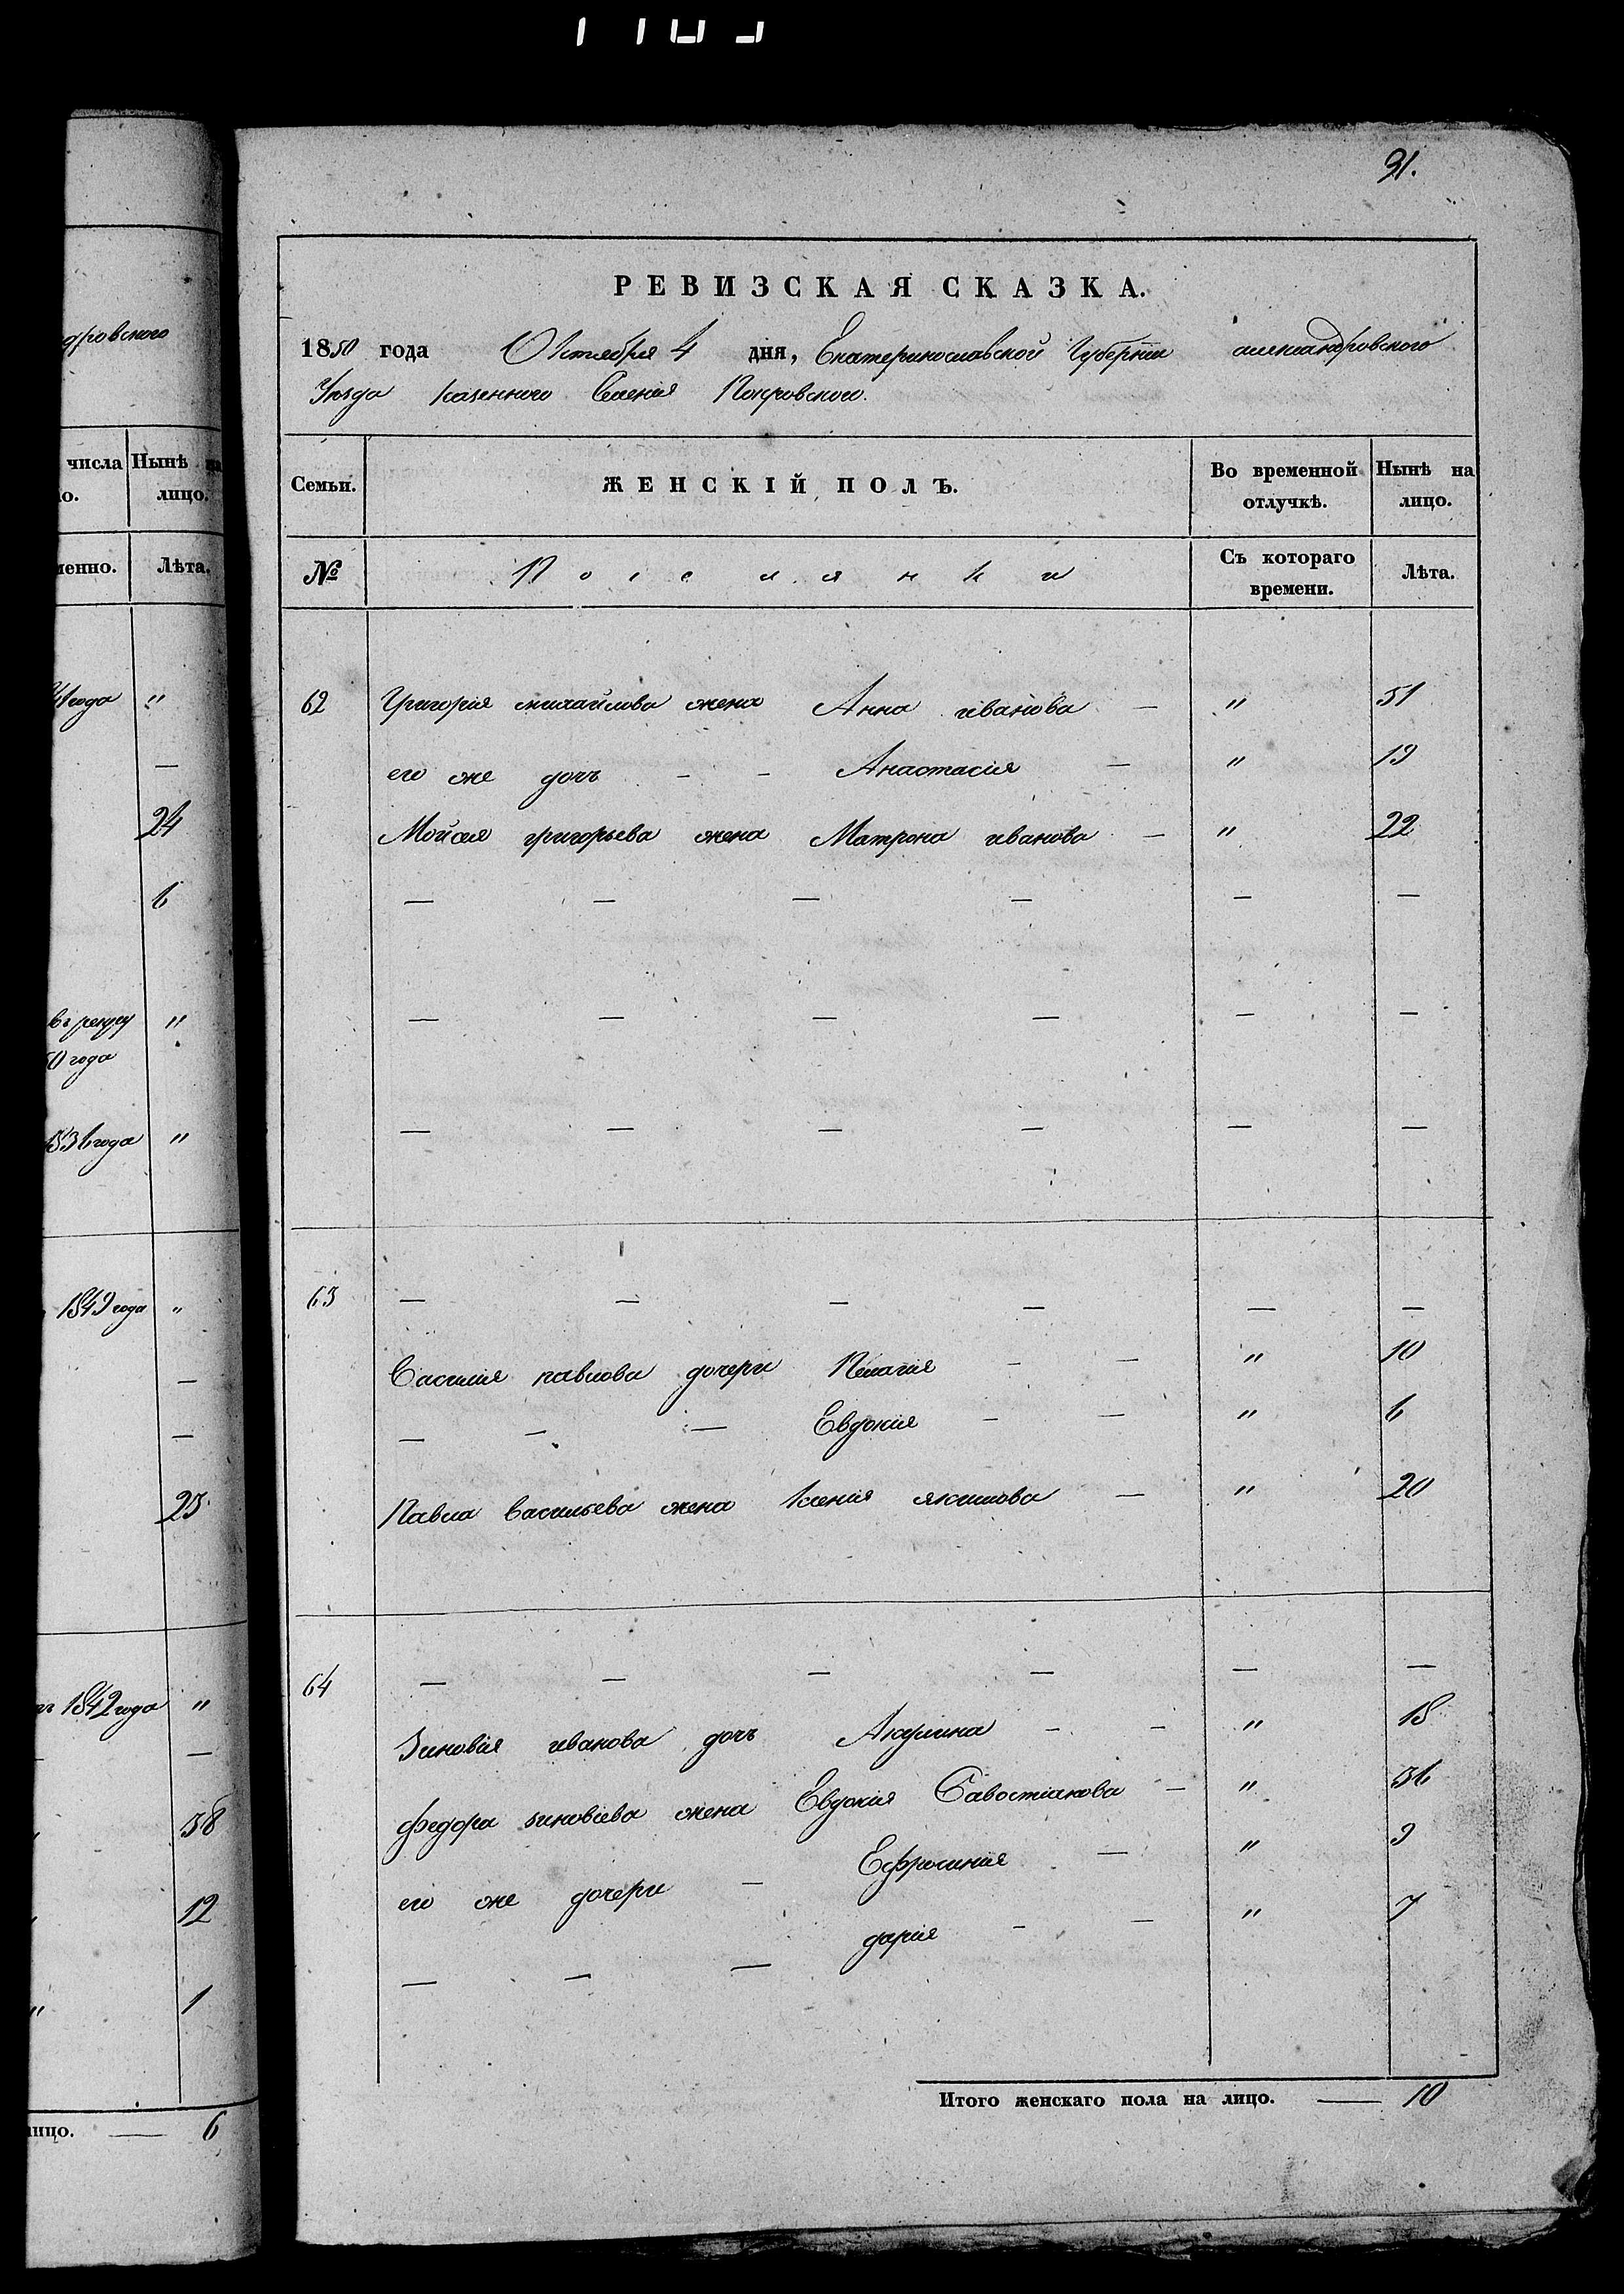 дровскаго
числа Нынѣ на
ло. лицо.
менно. Лѣта.
41 года "
—
24
6
въ рекру "
50 года
1836 года "
1849 года "
—
—
23
1842 года "
—
38
12
" 1
лицо. — 6
31.
РЕВИЗСКАЯ СКАЗКА.
1850 года Октября 4 дня, Екатеринославской Губернии александровского
Уезда казенного Селения Покровского.
Семьи. ЖЕНСКІЙ ПОЛЪ. Во временной отлучкѣ. Нынѣ на лицо.
№ Поселянки Съ котораго времени. Лѣта.
62 Григория михайлова жена Анна иванова — " 51
его же дочь - - Анастасия — " 19
Мойсея григорьева жена Матрона иванова — " 22
— — — — — —
— — — — — —
— — — — — —
63 — — — — — —
Василия павлова дочери Пелагия - — " 10
— - — Евдокия - — " 6
Павла васильева жена Ксения якимова — " 20
64 — — — — — —
Зиновия иванова дочь Акулина - - " 18
федора зиновіева жена Евдокия Савостіанова — " 36
его же дочери — Ефросиния — " 9
— - — дария - — " 7
Итого женскаго пола на лицо. — 10